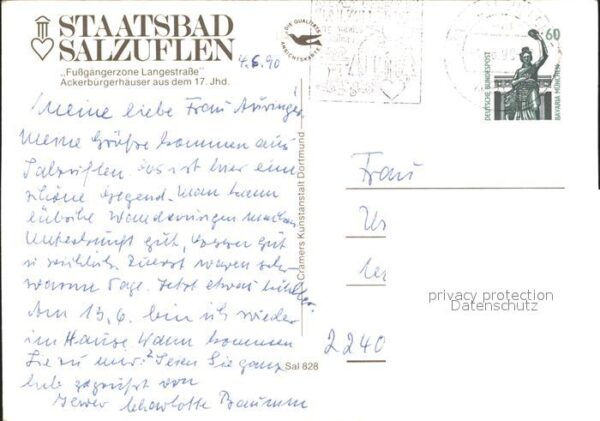 STAATSBAD
SALZUFLEN
DIE QUALITÄTS
ANSICHTSKARTE
4.6.90
„Fußgängerzone Langestraße"
Ackerbürgerhäuser aus dem 17. Jhd.
60
DEUTSCHE BUNDESPOST
BAVARIA MÜNCHEN
Meine liebe Frau
Meine Grüße kommen aus
Salzuflen. Das ist hier eine
schöne Gegend. Man kann
hübsche Wanderungen machen.
Unterkunft gut, Essen gut
u. reichlich. Zuerst waren sehr
warme Tage. Jetzt etwas kühler.
Am 13.6. bin ich wieder
im Hause. Wann kommen
Sie zu uns? Seien Sie ganz
lieb gegrüßt von
Ihrer Charlotte Baumm
Cramers Kunstanstalt Dortmund
Sal 828
Frau
2240
privacy protection
Datenschutz